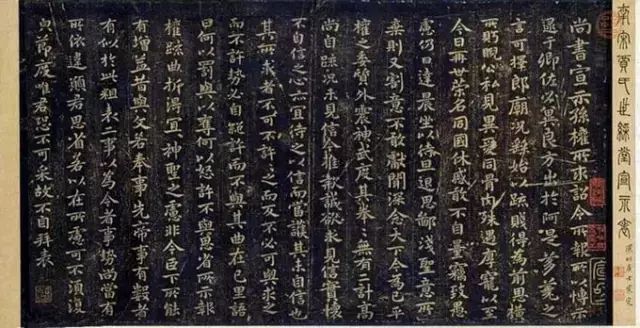 南宋賈氏世綵堂宣示表
尚書宣示孫權所求詔令所報所以博示
逮于卿佐必冀良方出於阿是芻蕘之
言可擇郎廟況繇始以疏賤得為前恩橫
所盻睨公私見異愛同骨肉殊遇厚寵以至
今日再世榮名同國休慼敢不自量竊致愚
慮仍日達晨坐以待旦退思鄙淺聖意所
棄則又割意不敢獻聞深念天下今為已平
權之委質外震神武度其拳拳無有二計高
尚自疏況未見信今推款誠欲求見信實懷
不自信之心亦宜待之以信而當護其未自信也
其所求者不可不許許之而反不必可與求之
而不許勢必自絕許而不與其曲在己里語
曰何以罰與以奪何以怒許不與思省所示報
權疏曲折得宜宜神聖之慮非今臣下所能
有增益昔與文若奉事先帝事有數者
有似於此粗表二事以為今者事勢尚當有
所依違願君思省若以在所慮可不須復
節度唯君恐不可采故不自拜表